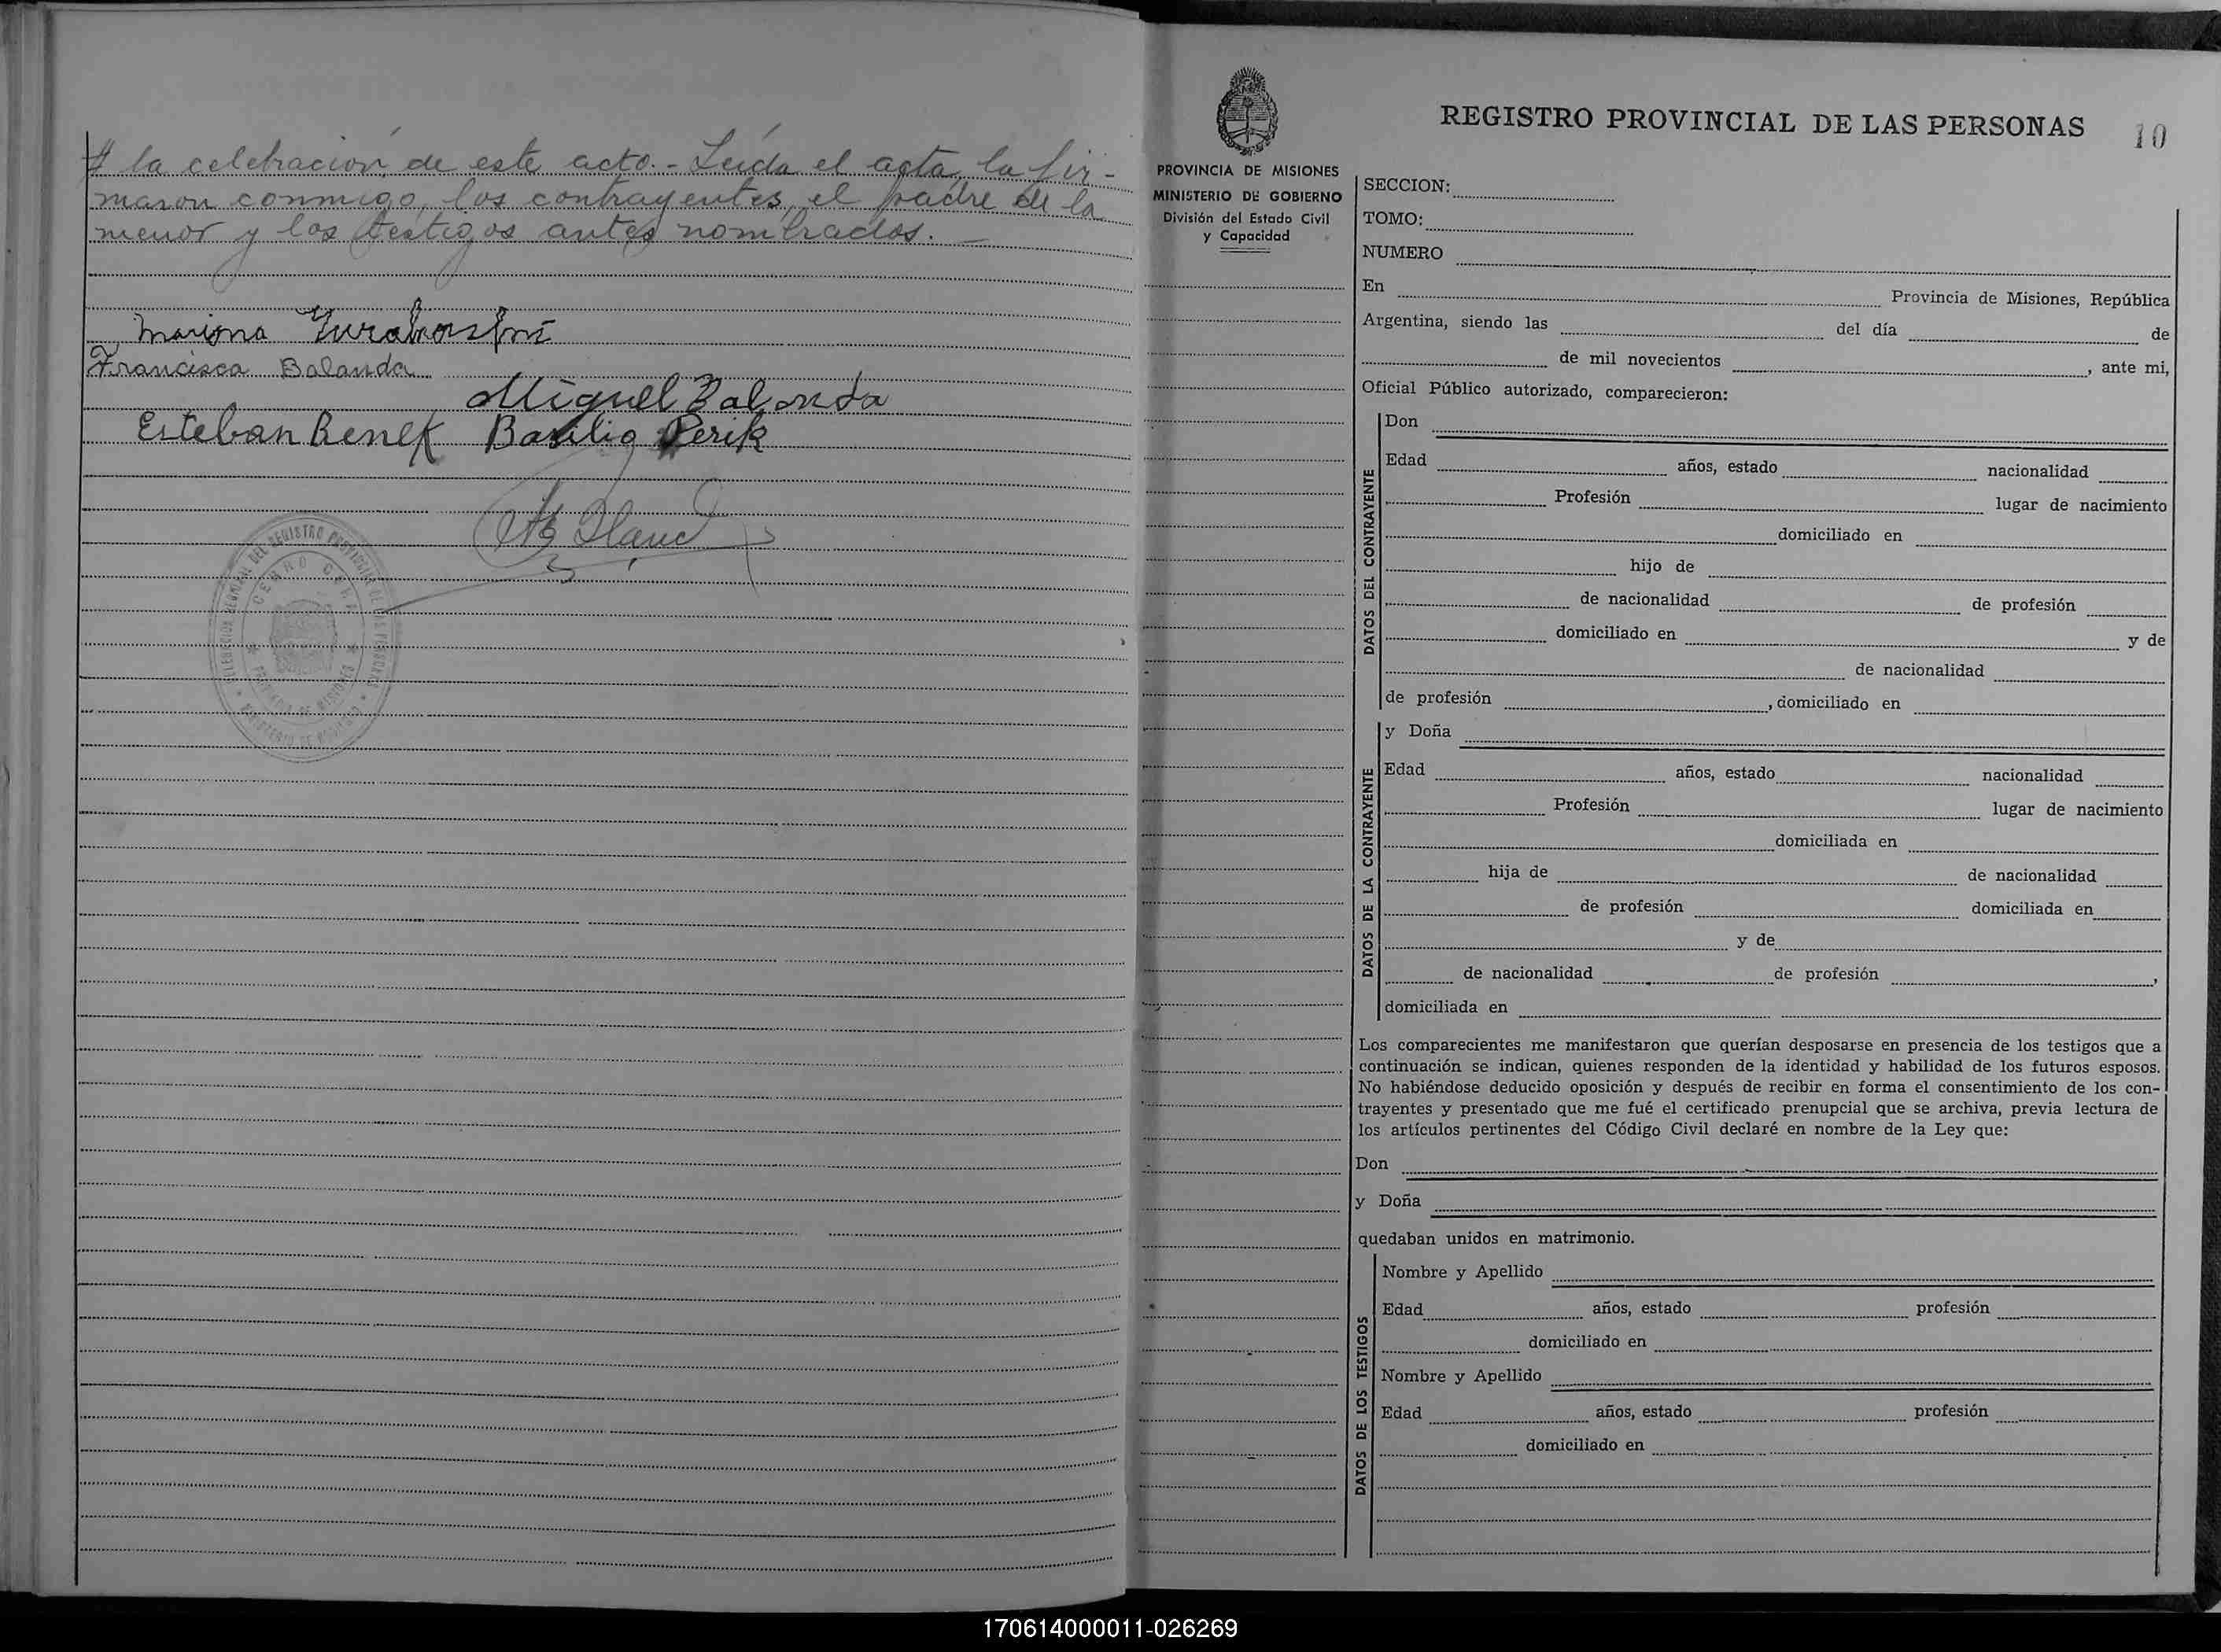 a la celebración de este acto.- Leída el acta, la fir-
maron conmigo, los contrayentes, el padre de la
menor y los testigos antes nombrados. -
Francisca Balanda
Miguel Balanda
Esteban Benek Basilio Perik
CERRO CORA
PROVINCIA DE MISIONES
REGISTRO PROVINCIAL DE LAS PERSONAS 10
PROVINCIA DE MISIONES
MINISTERIO DE GOBIERNO
División del Estado Civil
y Capacidad
SECCION:
TOMO:
NUMERO
En Provincia de Misiones, República
Argentina, siendo las del día de
de mil novecientos , ante mi,
Oficial Público autorizado, comparecieron:
DATOS DEL CONTRAYENTE
Don
Edad años, estado nacionalidad
Profesión lugar de nacimiento
domiciliado en
hijo de
de nacionalidad de profesión
domiciliado en y de
de nacionalidad
de profesión , domiciliado en
DATOS DE LA CONTRAYENTE
y Doña
Edad años, estado nacionalidad
Profesión lugar de nacimiento
domiciliada en
hija de de nacionalidad
de profesión domiciliada en
y de
de nacionalidad de profesión ,
domiciliada en
Los comparecientes me manifestaron que querían desposarse en presencia de los testigos que a
continuación se indican, quienes responden de la identidad y habilidad de los futuros esposos.
No habiéndose deducido oposición y después de recibir en forma el consentimiento de los con-
trayentes y presentado que me fué el certificado prenupcial que se archiva, previa lectura de
los artículos pertinentes del Código Civil declaré en nombre de la Ley que:
Don
y Doña
quedaban unidos en matrimonio.
DATOS DE LOS TESTIGOS
Nombre y Apellido
Edad años, estado profesión
domiciliado en
Nombre y Apellido
Edad años, estado profesión
domiciliado en
170614000011-026269